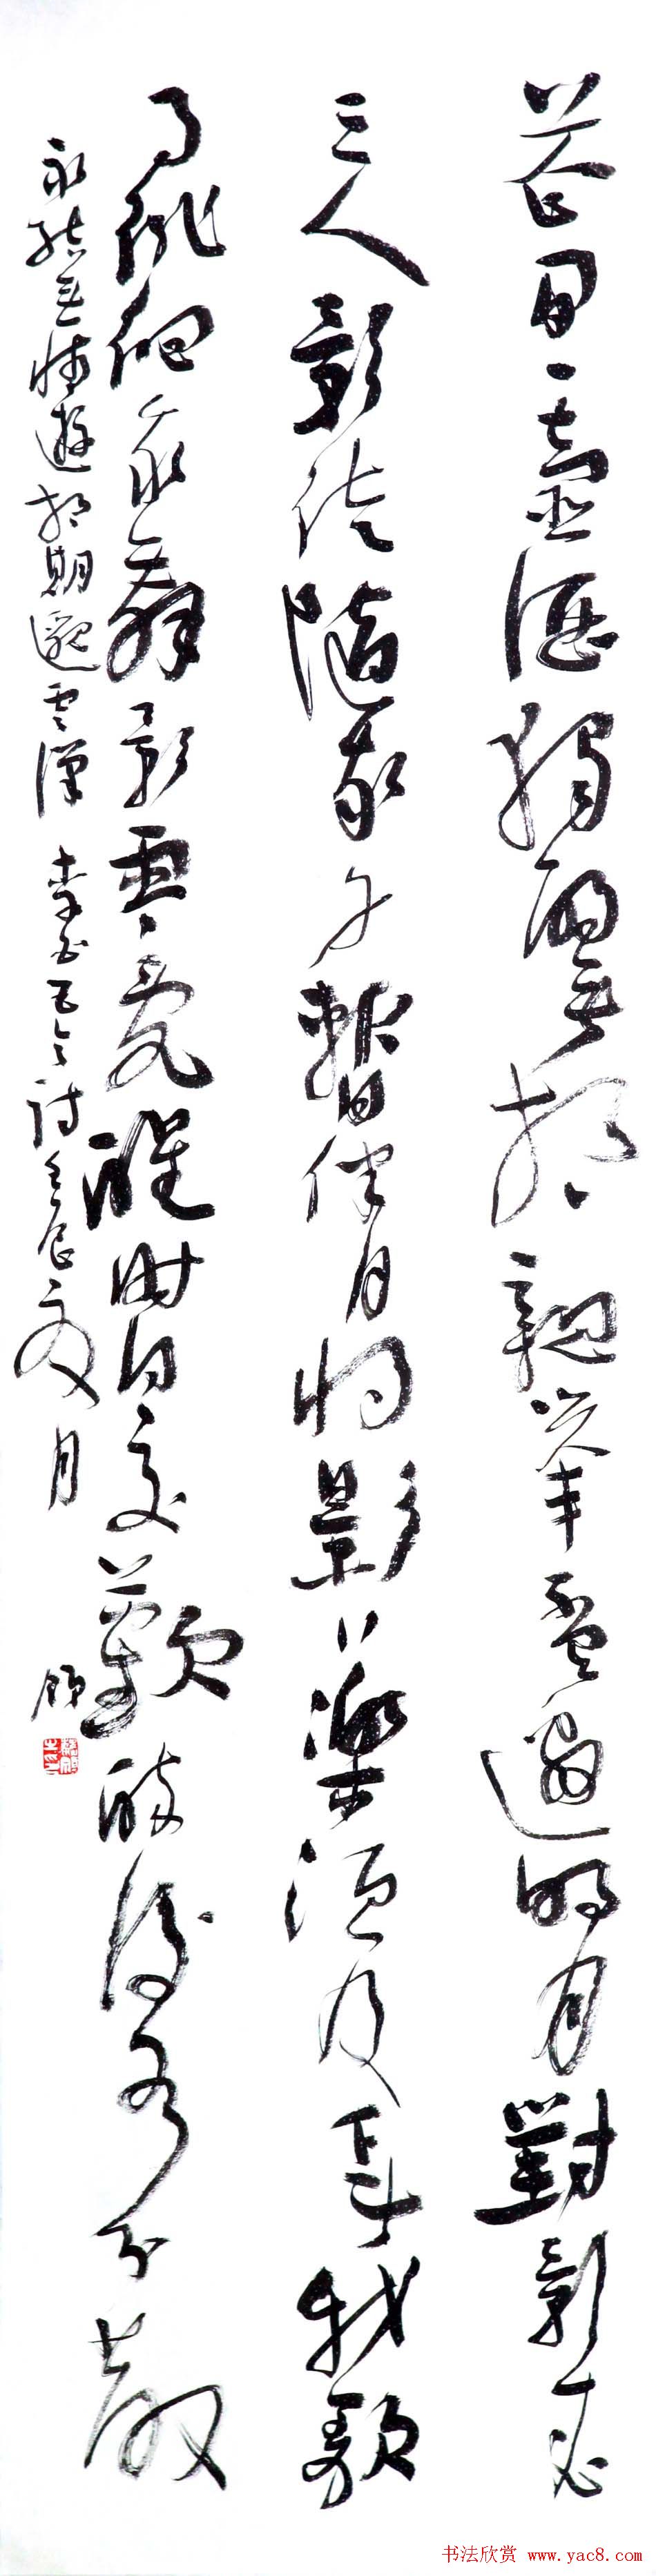 花間一壺酒獨酌無相親舉盃邀明月對影成
三人影徒隨我身暫伴月將影行樂須及春我歌
月徘徊我舞影零亂醒時同交歡醉後各分散
永結無情遊相期邈雲漢 李白五言詩 壬辰夏月
书法欣赏 www.yac8.com